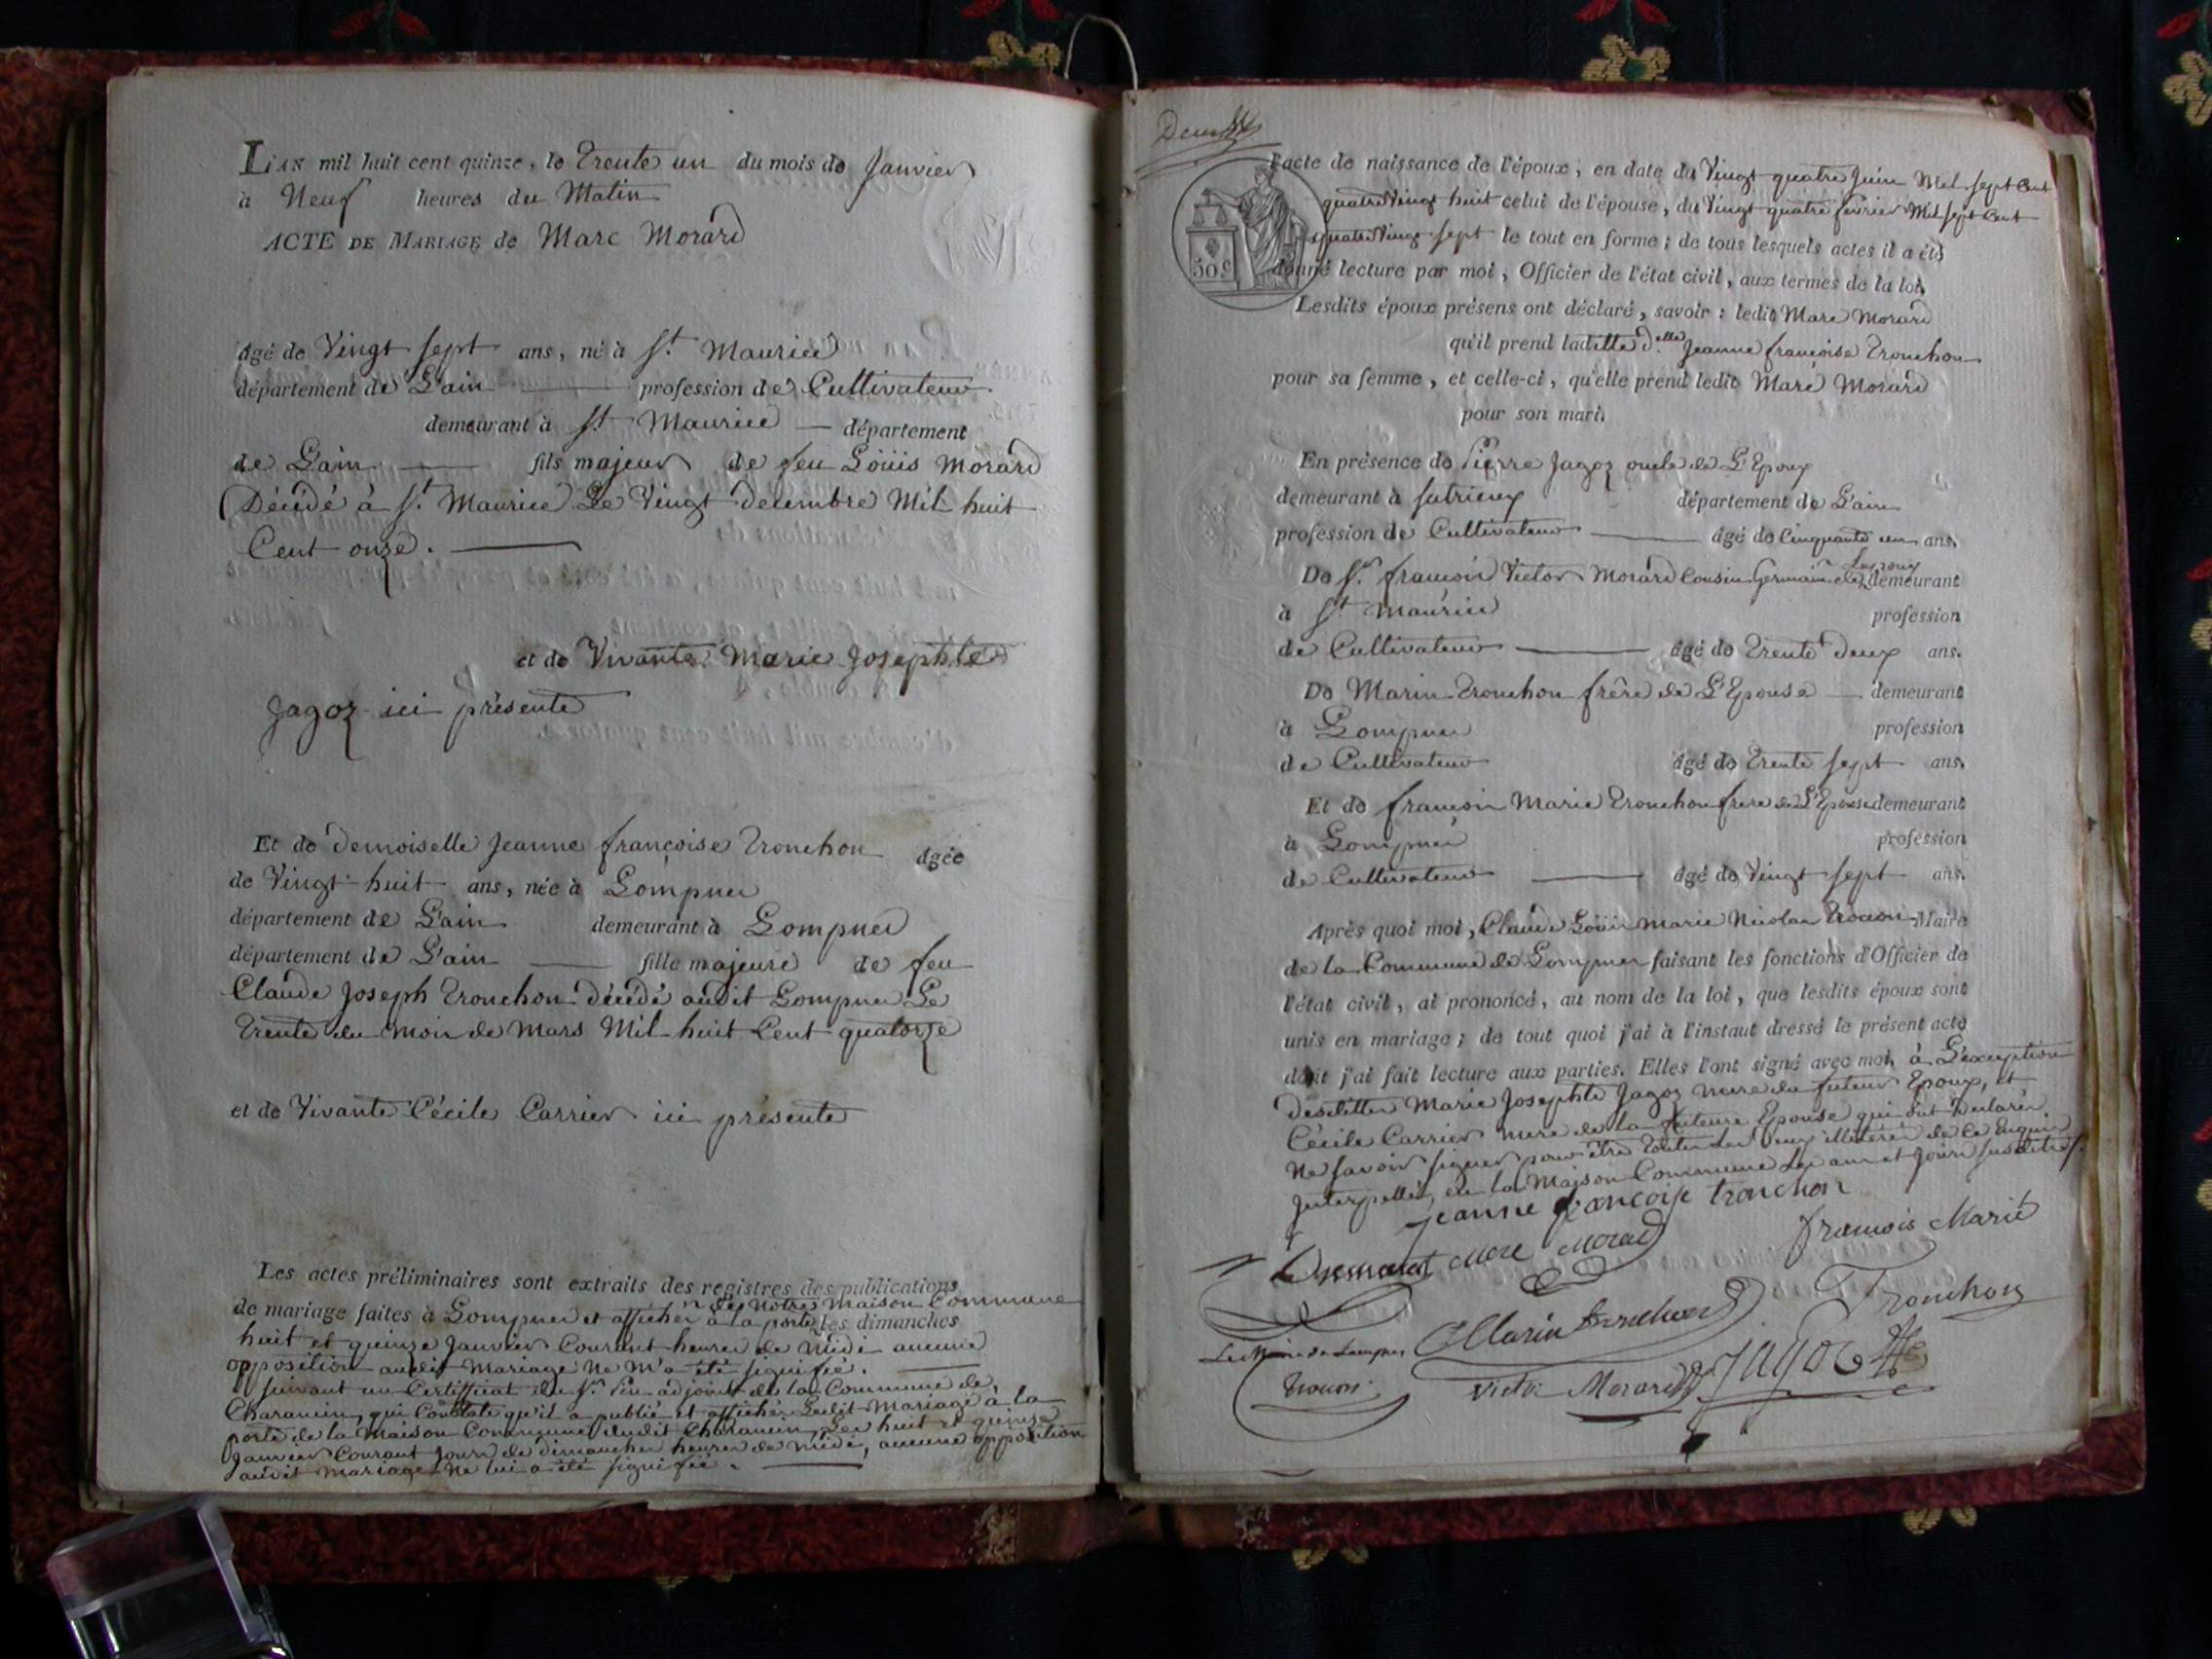 L'an mil huit cent quinze, le trente un du mois de Janvier
à Neuf heures du Matin
ACTE DE MARIAGE de Marc Morard
âgé de Vingt sept ans, né à St. Maurice
département de L'ain profession de Cultivateur
demeurant à St Maurice département
de L'ain fils majeur de feu Loüis Morard
Décédé à St. Maurice Le Vingt decembre Mil huit
Cent onze.
et de Vivante Marie Josephte
Jagoz ici présente
Et de demoiselle Jeanne françoise Tronchon âgée
de Vingt huit ans, née à Lompnes
département de L'ain demeurant à Lompnes
département de L'ain fille majeure de feu
Claude Joseph Tronchon décédé audit Lompnes Le
trente du mois de Mars Mil huit Cent quatorze
et de Vivante Cécile Carrier ici présente
Les actes préliminaires sont extraits des registres des publications
de mariage faites à Lompnes et affichés à la porte de Notre Maison Commune les dimanches
huit et quinze Janvier Courant heures de Midi aucune
opposition audit Mariage Ne M'a été signifié.
suivant un Certifficat du Sr. adjoint de la Commune de
Charancin, qui Constate qu'il a publié et affiché Ledit Mariage à la
porte de la Maison Commune dudit Charancin, Les huit et quinze
Janvier Courant Jours de dimanches heures de Midi, aucune opposition
audit mariage Ne lui a été signifié.
50 c
l'acte de naissance de l'époux, en date du Vingt quatre Juin Mil sept Cent
quatre Vingt huit celui de l'épouse, du Vingt quatre fevrier Mil sept Cent
quatre Vingt sept le tout en forme; de tous lesquels actes il a été
donné lecture par moi, Officier de l'état civil, aux termes de la loi.
Lesdits époux présens ont déclaré, savoir: ledit Marc Morard
qu'il prend laditte d.elle Jeanne françoise Tronchon
pour sa femme, et celle-ci, qu'elle prend ledit Marc Morard
pour son mari.
En présence de Pierre Jagoz oncle de L'Epoux
demeurant à Sutrieux département de L'ain
profession de Cultivateur âgé de Cinquante un ans.
De Sr. françois Victor Morard Cousin Germain de Lepoux demeurant
à St Maurice profession
de Cultivateur âgé de trente deux ans.
De Marin Tronchon frêre de L'Epouse demeurant
à Lompnes profession
de Cultivateur âgé de trente sept ans.
Et de françois Marie Tronchon frere de L'Epouse demeurant
à Lompnes profession
de Cultivateur âgé de Vingt sept ans.
Après quoi moi, Claude Loüis Marie Nicolas Maire
de la Commune de Lompnes faisant les fonctions d'Officier de
l'état civil, ai prononcé, au nom de la loi, que lesdits époux sont
unis en mariage; de tout quoi j'ai à l'instaut dressé le présent acte
dont j'ai fait lecture aux parties. Elles l'ont signé avec moi, à L'exception
desdittes Marie Josephte Jagoz mere du futeur Epoux, et
Cécile Carrier mere de la futeure Epouse qui ont declarés
Ne savoir signer pour être toutes Les deux illeterés de ce Enquises
Interpellés, en la Maison Commune Les an et Jours susdits.
jeanne francoise tronchon
Marc Morard
francois Marie
Tronchon
Marin tronchon
Le Maire de Lompnes
Victor Morard
jagoz